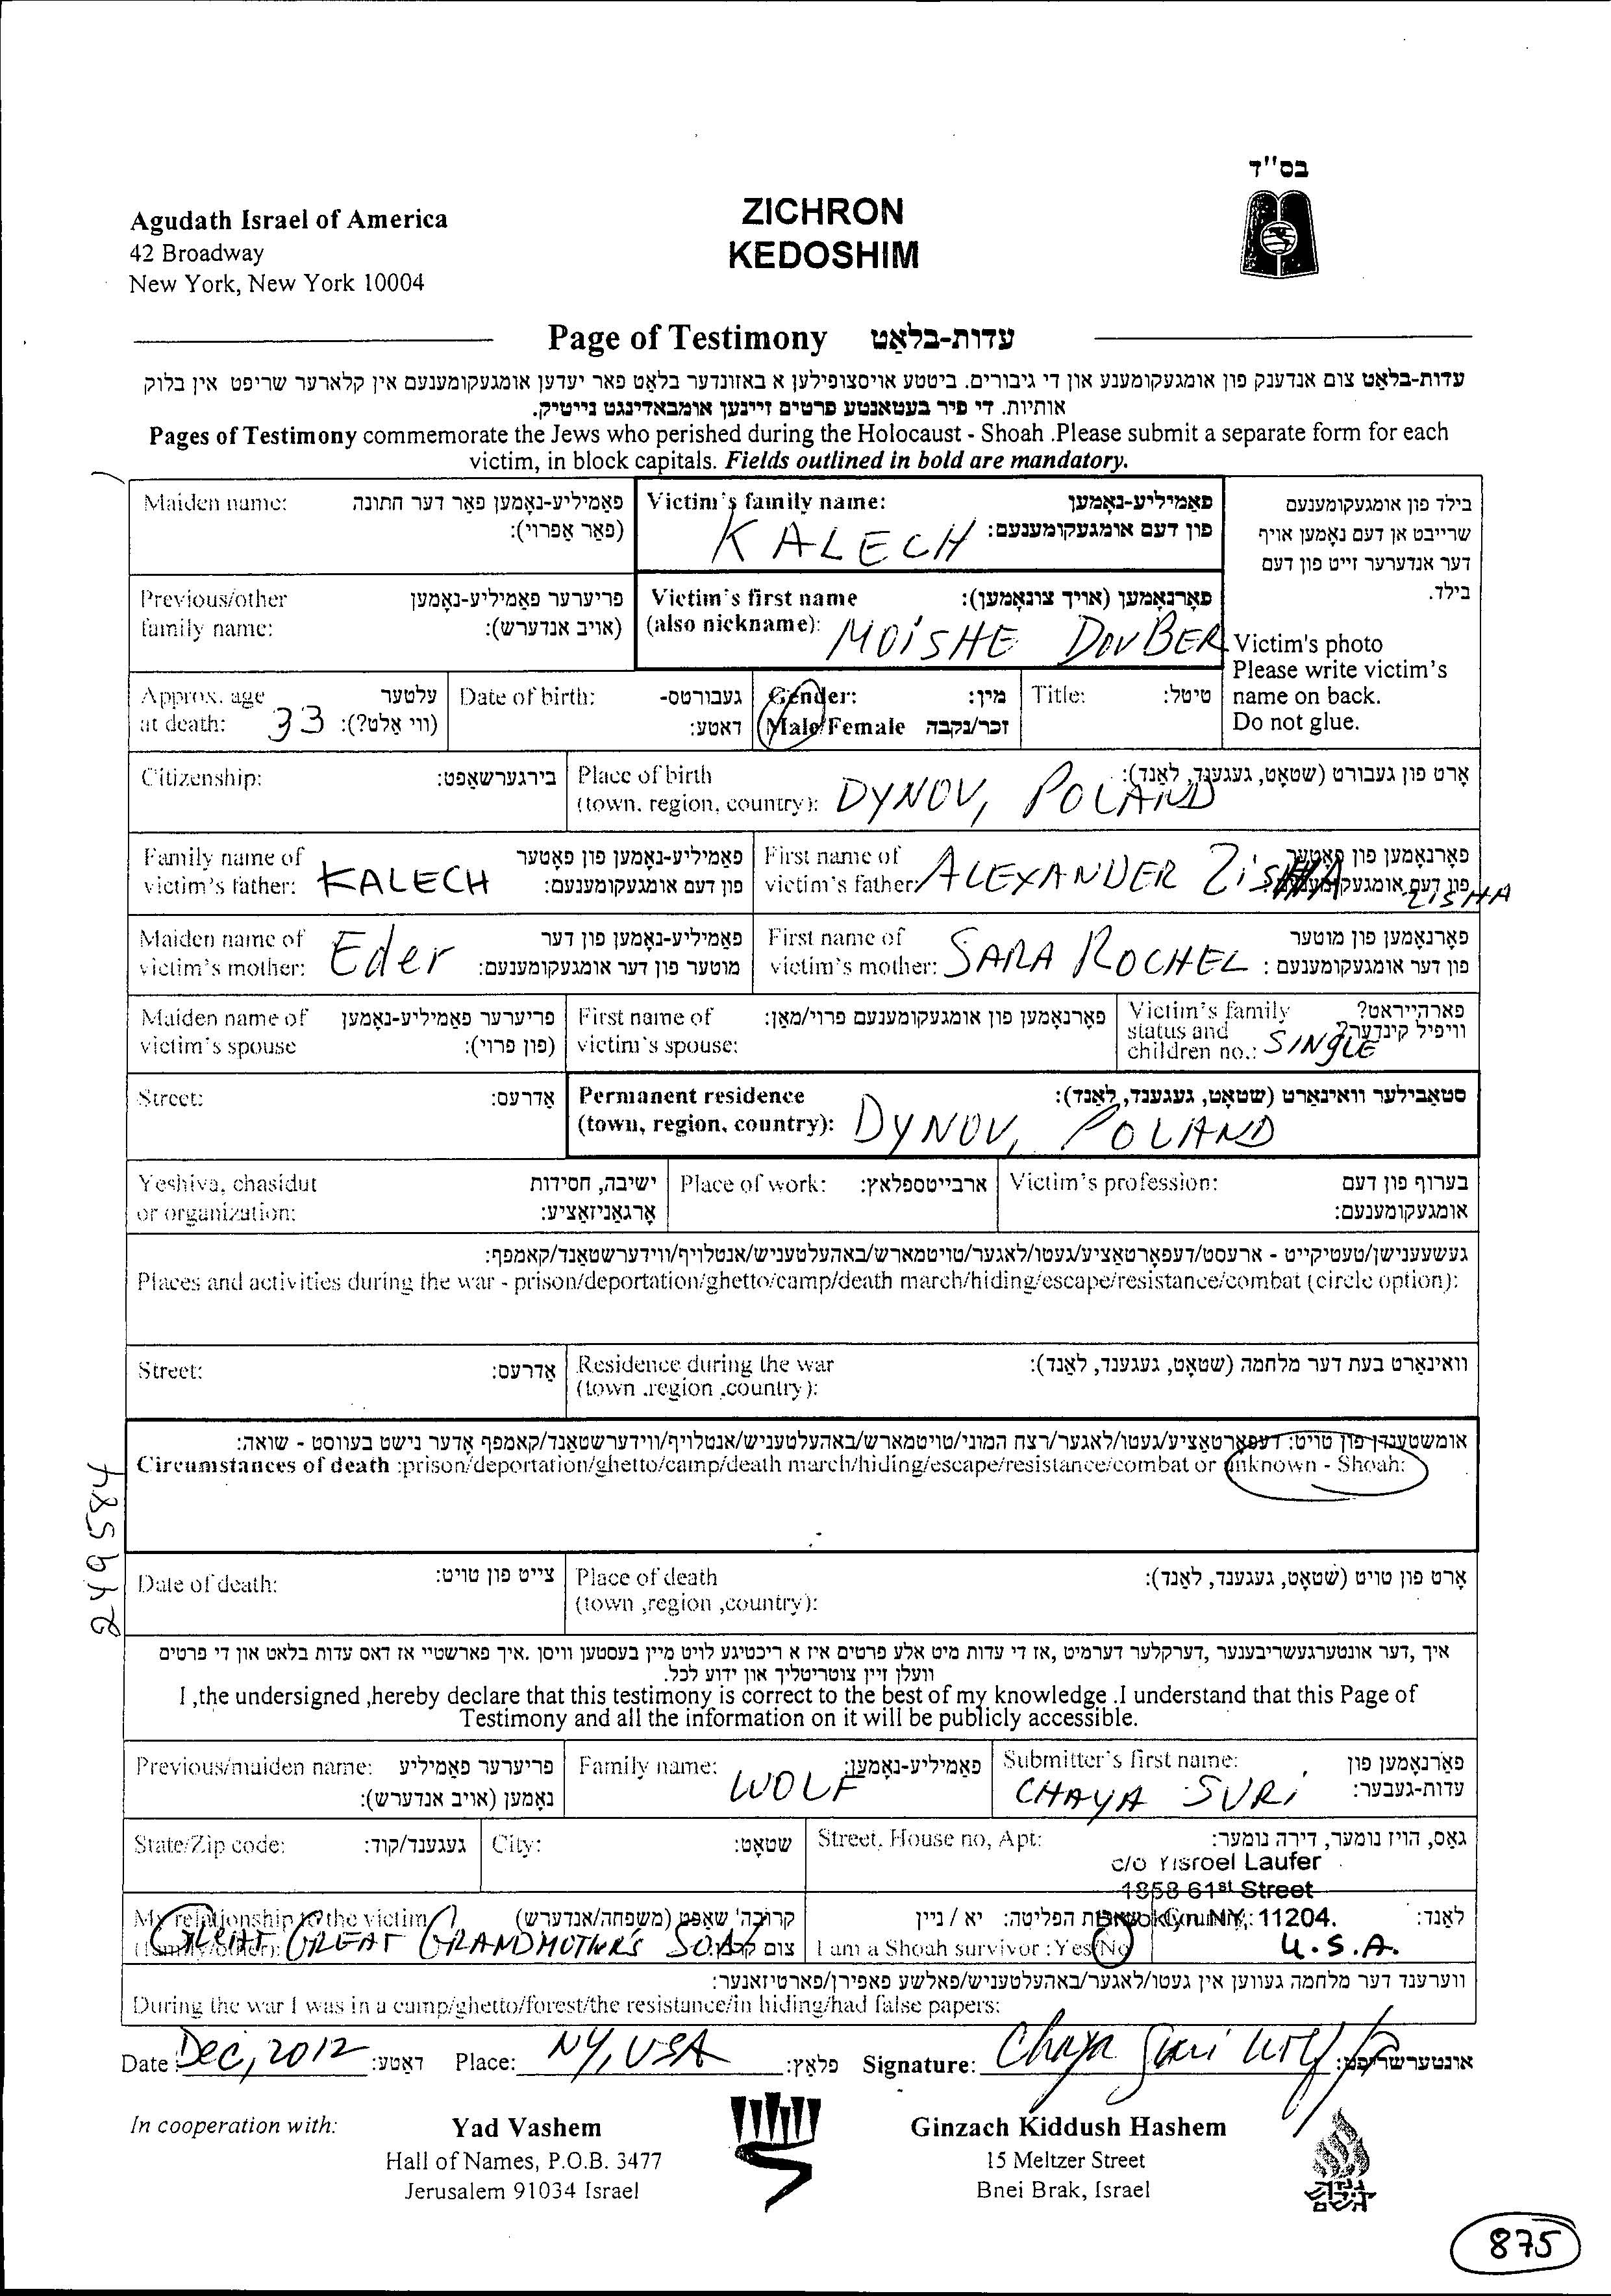 בס"ד
Agudath Israel of America
42 Broadway
New York, New York 10004
ZICHRON
KEDOSHIM
Page of Testimony עדות-בלאַט
עדות-בלאַט צום אנדענק פון אומגעקומענע און די גיבורים. ביטע אויסצופילען א באזונדער בלאט פאר יעדען אומגעקומענעם אין קלארער שריפט אין בלוק
אותיות. די פיר בעטאנטע פרטים זיינען אומבאדינגט נייטיק.
Pages of Testimony commemorate the Jews who perished during the Holocaust - Shoah .Please submit a separate form for each
victim, in block capitals. Fields outlined in bold are mandatory.
Maiden name: פאַמיליע-נאָמען פאַר דער חתונה
(פאַר אַפרוי):
Victim's family name: פאַמיליע-נאָמען
פון דעם אומגעקומענעם:
KALECH
בילד פון אומגעקומענעם
שרייבט אן דעם נאָמען אויף
דער אנדערער זייט פון דעם
בילד.
Previous/other פריערער פאַמיליע-נאָמען
family name: (אויב אנדערש):
Victim's first name פאָרנאָמען (אויך צונאָמען):
(also nickname): MOISHE DOVBER
Victim's photo
Please write victim's
name on back.
Do not glue.
Approx. age עלטער
at death: 33 (ווי אַלט?):
Date of birth: געבורטס-
דאטע:
Gender: מין:
Male/Female זכר/נקבה
Title: טיטל:
Citizenship: בירגערשאַפט:
Place of birth אָרט פון געבורט (שטאָט, געגענד, לאַנד):
(town, region, country): DYNOV, POLAND
Family name of פאַמיליע-נאָמען פון פאָטער
victim's father: KALECH פון דעם אומגעקומענעם:
First name of פאָרנאָמען פון פאָטער
victim's father: ALEXANDER ZISHA פון דעם אומגעקומענעם:
ZISHA
Maiden name of פאַמיליע-נאָמען פון דער
victim's mother: Eder מוטער פון דער אומגעקומענעם:
First name of פאָרנאָמען פון מוטער
victim's mother: SARA ROCHEL פון דער אומגעקומענעם:
Maiden name of פריערער פאַמיליע-נאָמען
victim's spouse (פון פרוי):
First name of פאָרנאָמען פון אומגעקומענעם פרוי/מאַן:
victim's spouse:
Victim's family פארהייראט?
status and וויפיל קינדער?
children no.: SINGLE
Street: אַדרעס:
Permanent residence סטאַבילער וואוינאָרט (שטאָט, געגענד, לאַנד):
(town, region, country): DYNOV, POLAND
Yeshiva, chasidut ישיבה, חסידות
or organization: אָרגאַניזאַציע:
Place of work: ארבייטספלאץ:
Victim's profession: בערוף פון דעם
אומגעקומענעם:
געשעענישן/טעטיקייט - ארעסט/דעפאָרטאַציע/געטו/לאגער/טויטמארש/באהעלטעניש/אנטלויף/ווידערשטאַנד/קאמפף:
Places and activities during the war - prison/deportation/ghetto/camp/death march/hiding/escape/resistance/combat (circle option):
Street: אַדרעס:
Residence during the war וואוינאָרט בעת דער מלחמה (שטאָט, געגענד, לאַנד):
(town ,region ,country):
אומשטענדן פון טויט: דעפאָרטאַציע/געטו/לאגער/רצח המוני/טויטמארש/באהעלטעניש/אנטלויף/ווידערשטאַנד/קאמפף אָדער נישט בעוווסט - שואה:
Circumstances of death :prison/deportation/ghetto/camp/death march/hiding/escape/resistance/combat or unknown - Shoah:
249584
Date of death: צייט פון טויט:
Place of death אָרט פון טויט (שטאָט, געגענד, לאַנד):
(town ,region ,country):
איך, דער אונטערגעשריבענער, דערקלער דערמיט, אז די עדות מיט אלע פרטים איז א ריכטיגע לויט מיין בעסטען וויסן. איך פארשטיי אז דאס עדות בלאט און די פרטים
וועלן זיין צוטריטליך און ידוע לכל.
I ,the undersigned ,hereby declare that this testimony is correct to the best of my knowledge .I understand that this Page of
Testimony and all the information on it will be publicly accessible.
Previous/maiden name: פריערער פאַמיליע
נאָמען (אויב אנדערש):
Family name: פאַמיליע-נאָמען:
WOLF
Submitter's first name: פאָרנאָמען פון
עדות-געבער:
CHAYA SURI
State/Zip code: געגענד/קוד:
City: שטאָט:
Street, House no, Apt: גאַס, הויז נומער, דירה נומער:
c/o Yisroel Laufer
1858 61st Street
Brooklyn NY, 11204.
My relationship to the victim קרובה'שאַפט (משפחה/אנדערש)
(family/other): צום
GREAT GREAT GRANDMOTHER'S SON
שארית הפליטה: יא / ניין
I am a Shoah survivor :Yes/No
Country: לאַנד:
U.S.A.
ווערענד דער מלחמה געווען אין געטו/לאגער/באהעלטעניש/פאלשע פאפירן/פארטיזאנער:
During the war I was in a camp/ghetto/forest/the resistance/in hiding/had false papers:
Date: Dec, 2012 דאַטע: Place: NY, USA פלאַץ: Signature: Chaya Suri Wolf אונטערשריפט:
In cooperation with:
Yad Vashem
Hall of Names, P.O.B. 3477
Jerusalem 91034 Israel
Ginzach Kiddush Hashem
15 Meltzer Street
Bnei Brak, Israel
875